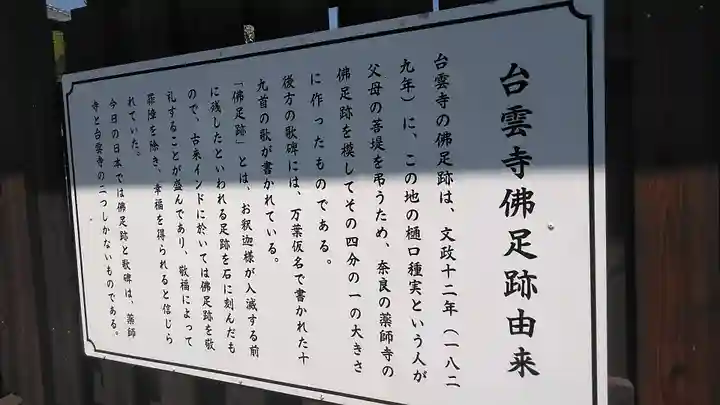 台雲寺佛足跡由来
台雲寺の佛足跡は、文政十二年（一八二
九年）に、この地の樋口種実という人が
父母の菩堤を弔うため、奈良の薬師寺の
佛足跡を模してその四分の一の大きさ
に作ったものである。
後方の歌碑には、万葉仮名で書かれた十
九首の歌が書かれている。
「佛足跡」とは、お釈迦様が入滅する前
に残したといわれる足跡を石に刻んだも
ので、古来インドに於いては佛足跡を敬
礼することが盛んであり、敬福によって
罪障を除き、幸福を得られると信じら
れていた。
今日の日本では佛足跡と歌碑は、薬師
寺と台雲寺の二つしかないものである。